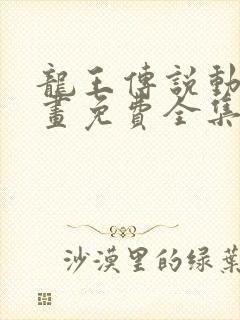 龍王傳説動
畫免費全集
沙漠里的绿葉